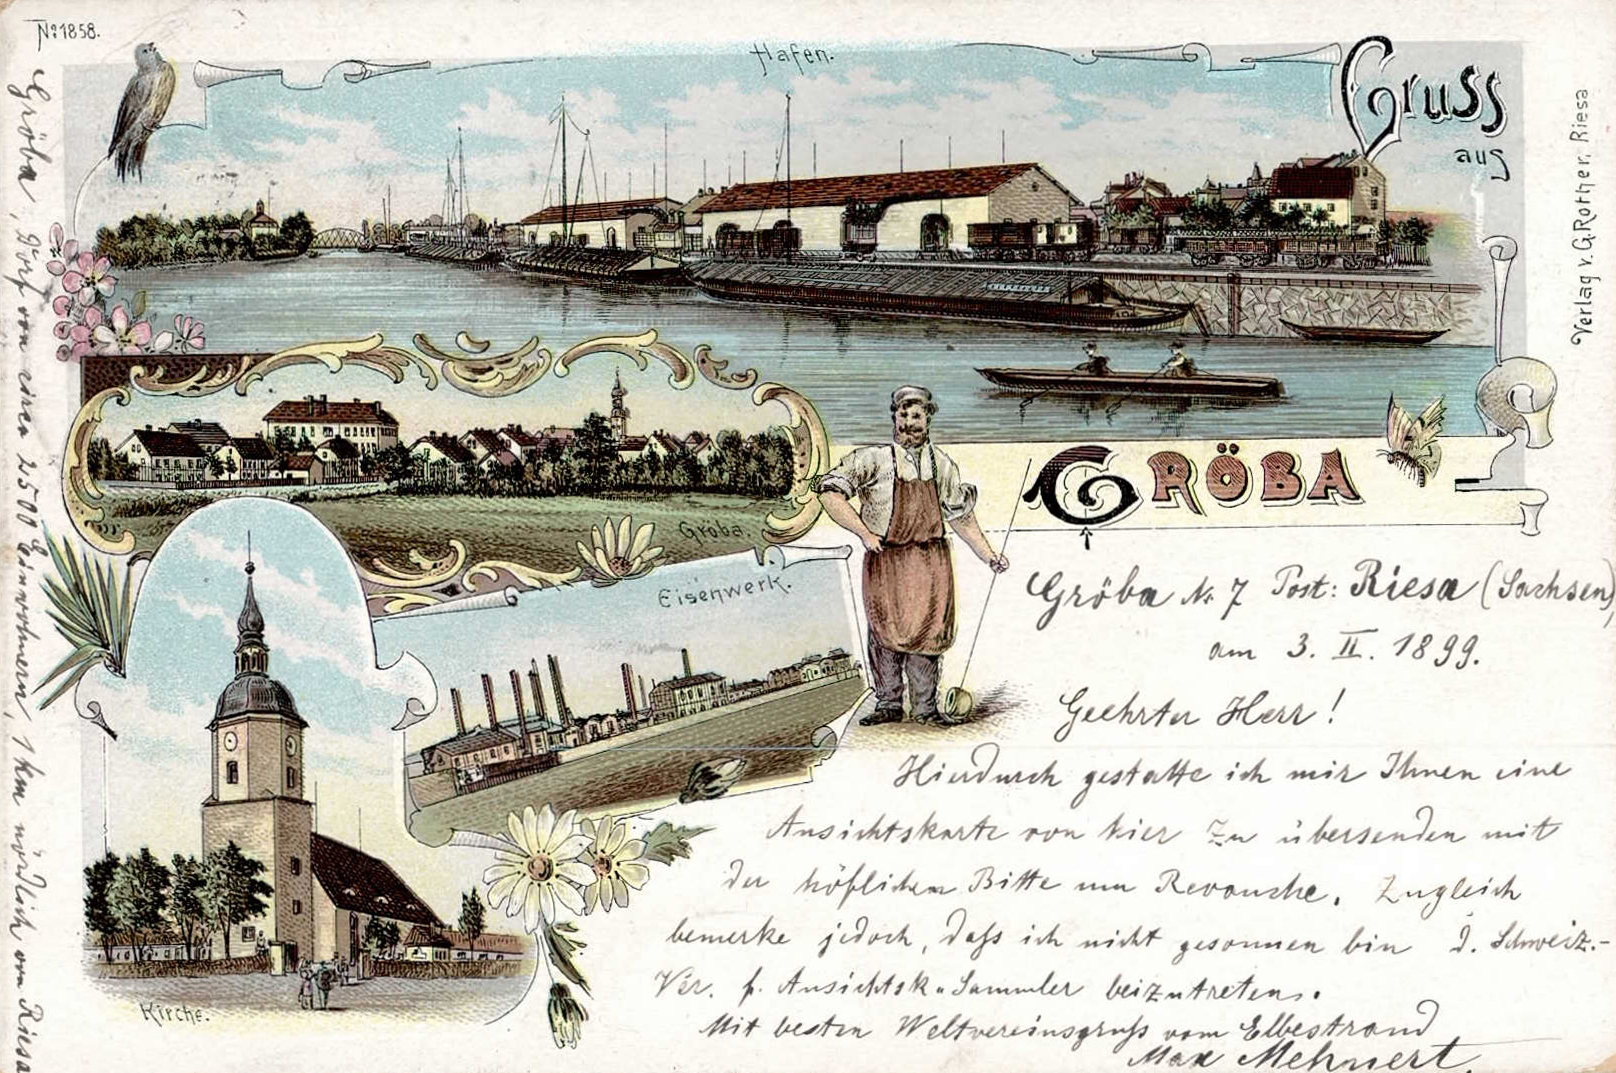 No 1858.
Hafen.
Gruss
aus
GRÖBA
Verlag v. G. Rother, Riesa
Gröba.
Eisenwerk.
Kirche.
Gröba, Dorf von einen 2500 Einwohnern, 1 km nördlich von Riesa
Gröba No 7 Post: Riesa (Sachsen)
am 3. II. 1899.
Geehrter Herr!
Hierdurch gestatte ich mir Ihnen eine
Ansichtskarte von hier zu übersenden mit
der höflichen Bitte um Revanche. Zugleich
bemerke jedoch, daß ich nicht gesonnen bin d. Schweiz.-
Ver. f. Ansichtsk.-Sammler beizutreten.
Mit besten Weltvereinsgruß vom Elbestrand
Max Mehnert.